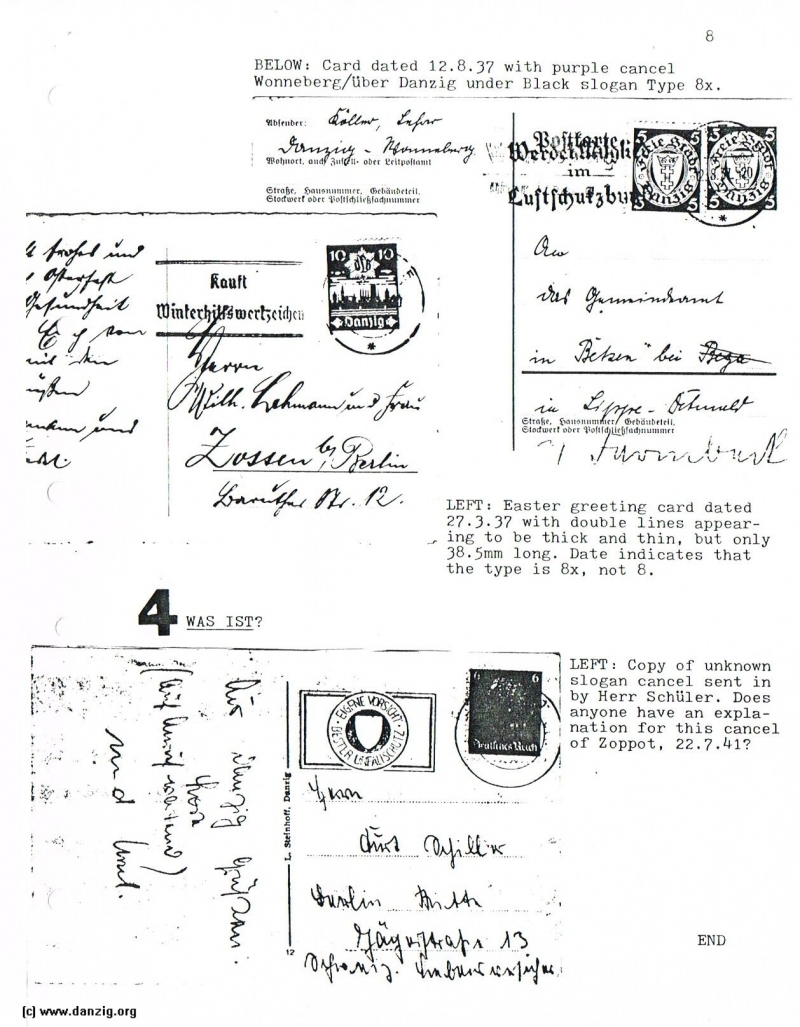 8
BELOW: Card dated 12.8.37 with purple cancel
Wonneberg/über Danzig under Black slogan Type 8x.
Absender: Köller, Lehrer
Danzig - Wonneberg
Wohnort, auch Zustell- oder Leitpostamt
Straße, Hausnummer, Gebäudeteil,
Stockwerk oder Postschließfachnummer
Postkarte
Werdet Mitglied
im
Luftschutzbund
5 5 5 5
Freie Stadt Freie Stadt
Danzig Danzig
5 5 5
An
das Gemeindeamt
in "Betzen" bei
in Lippe - Detmold
Straße, Hausnummer, Gebäudeteil,
Stockwerk oder Postschließfachnummer
frohes und
Osterfest
Gesundheit
von
und
Kauft
Winterhilfswertzeichen
10 10
Danzig
Herrn
Wilh. Lehmann und Frau
Zossen b/ Berlin
Baruther Str. 12.
LEFT: Easter greeting card dated
27.3.37 with double lines appear-
ing to be thick and thin, but only
38.5mm long. Date indicates that
the type is 8x, not 8.
4 WAS IST?
LEFT: Copy of unknown
slogan cancel sent in
by Herr Schüler. Does
anyone have an expla-
nation for this cancel
of Zoppot, 22.7.41?
EIGENE VORSICHT
BESTER UNFALLSCHUTZ
6 6
Deutsches Reich
L. Steinhoff, Danzig
12
Herrn
Curt Schiller
Berlin Mitte
Jägerstraße 13
END
(c) www.danzig.org